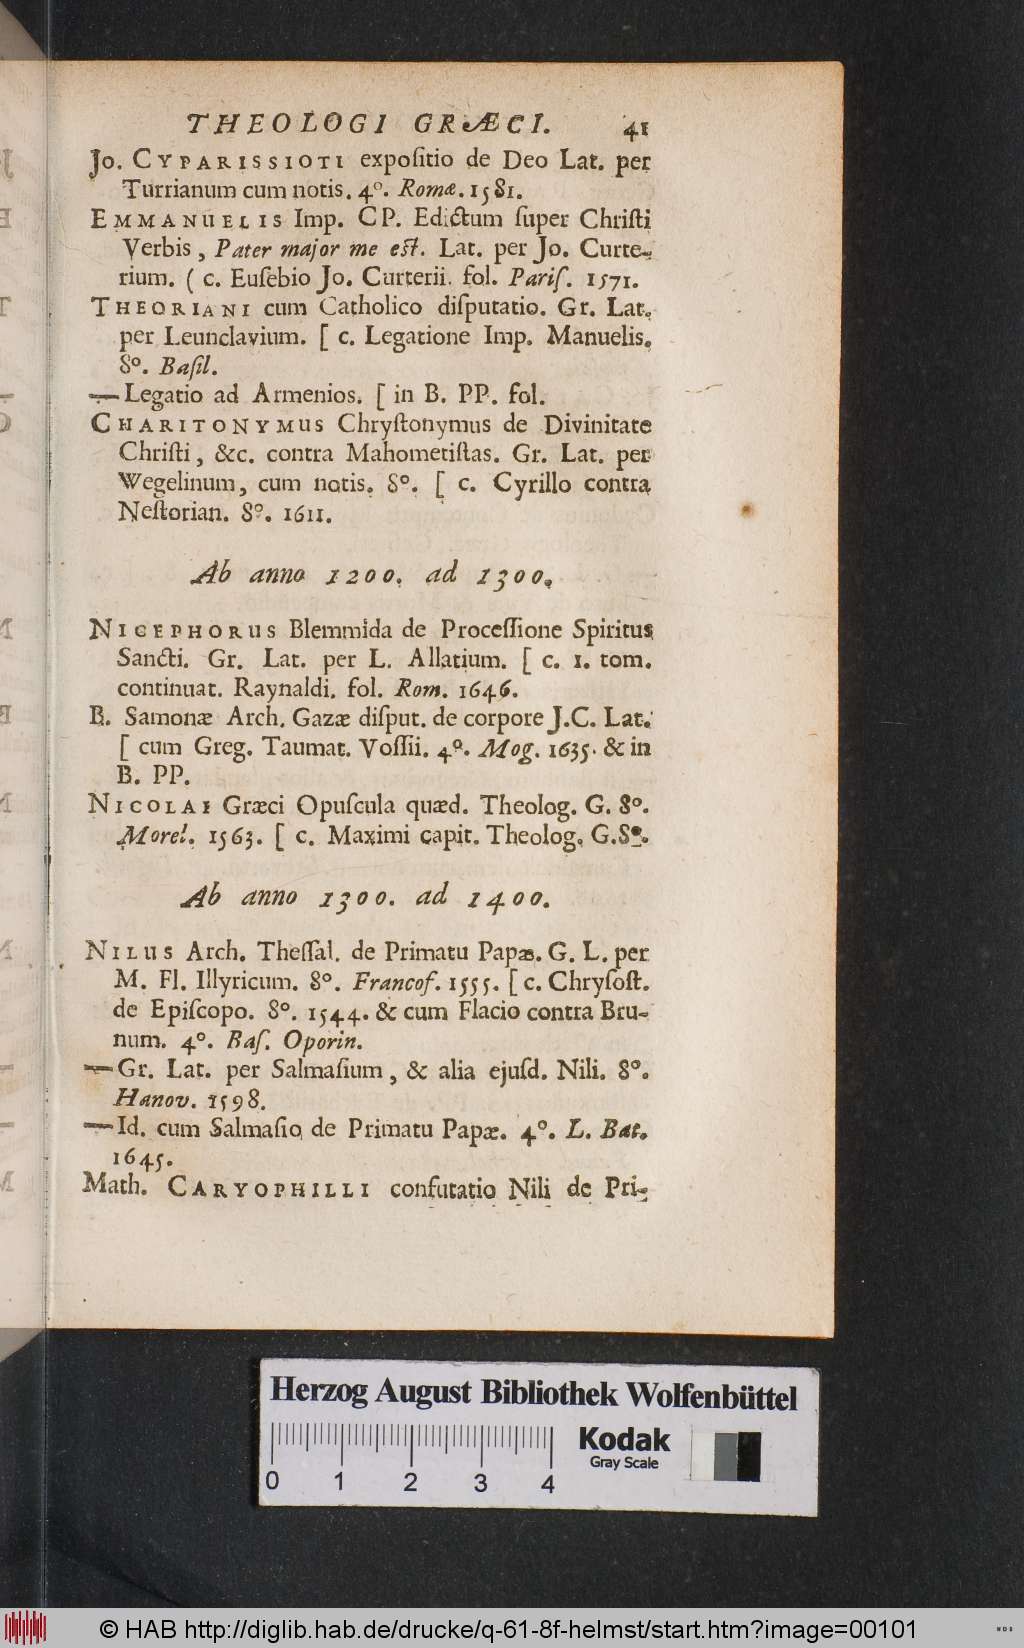 THEOLOGI GRÆCI. 41
Jo. CYPARISSIOTI expoſitio de Deo Lat. per
Turrianum cum notis. 4°. Romæ. 1581.
EMMANUELIS Imp. CP. Edictum ſuper Chriſti
Verbis, Pater major me eſt. Lat. per Jo. Curte-
rium. ( c. Euſebio Jo. Curterii. fol. Pariſ. 1571.
THEORIANI cum Catholico diſputatio. Gr. Lat.
per Leunclavium. [ c. Legatione Imp. Manuelis.
8°. Baſil.
— Legatio ad Armenios. [ in B. PP. fol.
CHARITONYMUS Chryſtonymus de Divinitate
Chriſti, &c. contra Mahometiſtas. Gr. Lat. per
Wegelinum, cum notis. 8°. [ c. Cyrillo contra
Neſtorian. 8°. 1611.
Ab anno 1200. ad 1300.
NICEPHORUS Blemmida de Proceſſione Spiritus
Sancti. Gr. Lat. per L. Allatium. [ c. 1. tom.
continuat. Raynaldi. fol. Rom. 1646.
B. Samonæ Arch. Gazæ diſput. de corpore J.C. Lat.
[ cum Greg. Taumat. Voſſii. 4°. Mog. 1635. & in
B. PP.
NICOLAI Græci Opuſcula quæd. Theolog. G. 8°.
Morel. 1563. [ c. Maximi capit. Theolog. G. 8°.
Ab anno 1300. ad 1400.
NILUS Arch. Theſſal. de Primatu Papæ. G. L. per
M. Fl. Illyricum. 8°. Francof. 1555. [ c. Chryſoſt.
de Epiſcopo. 8°. 1544. & cum Flacio contra Bru-
num. 4°. Baſ. Oporin.
— Gr. Lat. per Salmaſium, & alia ejuſd. Nili. 8°.
Hanov. 1598.
— Id. cum Salmaſio de Primatu Papæ. 4°. L. Bat.
1645.
Math. CARYOPHILLI confutatio Nili de Pri-
Herzog August Bibliothek Wolfenbüttel
Kodak
Gray Scale
0 1 2 3 4
© HAB http://diglib.hab.de/drucke/q-61-8f-helmst/start.htm?image=00101